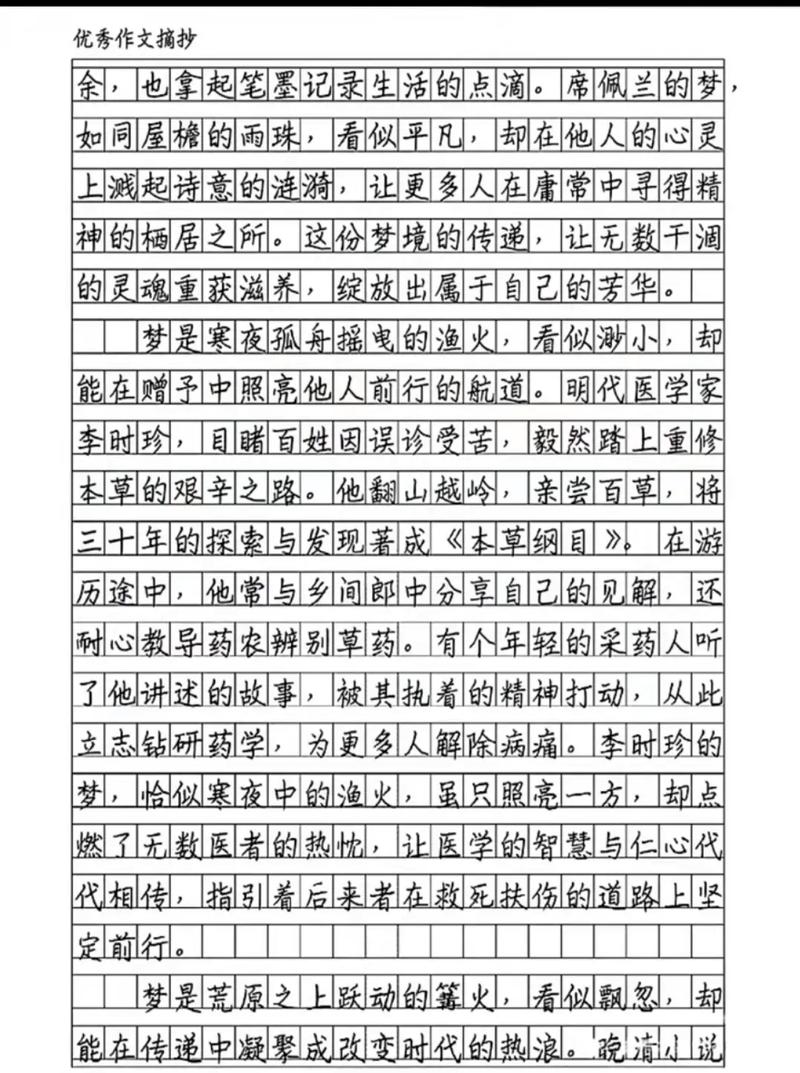 优秀作文摘抄
余，也拿起笔墨记录生活的点滴。席佩兰的梦，
如同屋檐的雨珠，看似平凡，却在他人的心灵
上溅起诗意的涟漪，让更多人在庸常中寻得精
神的栖居之所。这份梦境的传递，让无数干涸
的灵魂重获滋养，绽放出属于自己的芳华。
梦是寒夜孤舟摇曳的渔火，看似渺小，却
能在赠予中照亮他人前行的航道。明代医学家
李时珍，目睹百姓因误诊受苦，毅然踏上重修
本草的艰辛之路。他翻山越岭，亲尝百草，将
三十年的探索与发现著成《本草纲目》。在游
历途中，他常与乡间郎中分享自己的见解，还
耐心教导药农辨别草药。有个年轻的采药人听
了他讲述的故事，被其执着的精神打动，从此
立志钻研药学，为更多人解除病痛。李时珍的
梦，恰似寒夜中的渔火，虽只照亮一方，却点
燃了无数医者的热忱，让医学的智慧与仁心代
代相传，指引着后来者在救死扶伤的道路上坚
定前行。
梦是荒原之上跃动的篝火，看似飘忽，却
能在传递中凝聚成改变时代的热浪。晚清小说